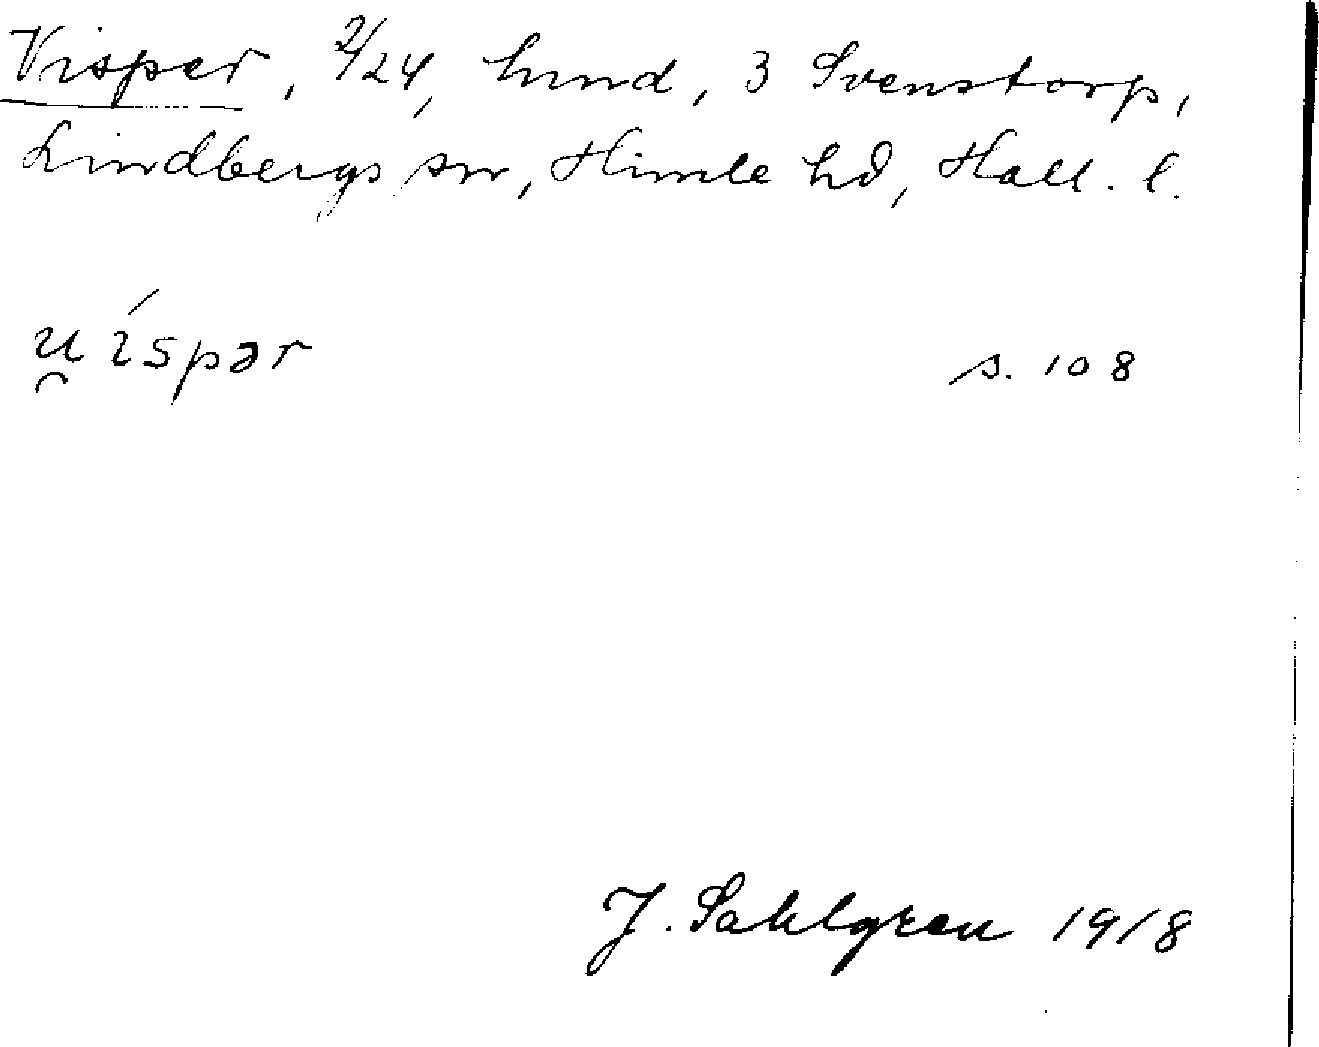 Visper, 2/24, hund, 3 Svenstorp,
Lindbergs sn, Himle hd, Hall. l.
u̯íspər
s. 108
J. Sahlgren 1918